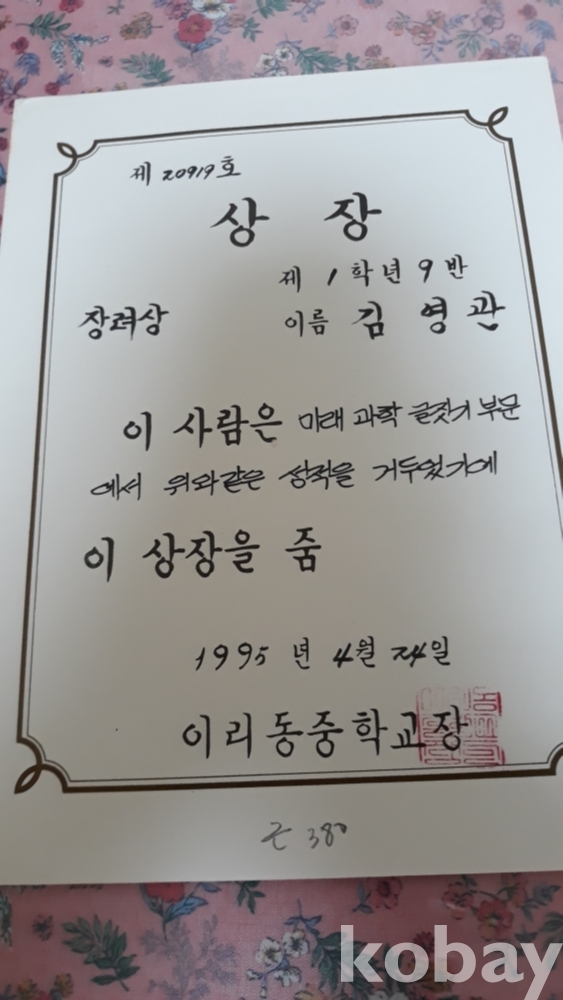 제 20919호
상 장
제 1 학년 9 반
장려상
이름 김 영 관
이 사람은 미래 과학 글짓기 부문
에서 위와같은 성적을 거두었기에
이 상장을 줌
1995 년 4월 24일
이리동중학교장
380
kobay